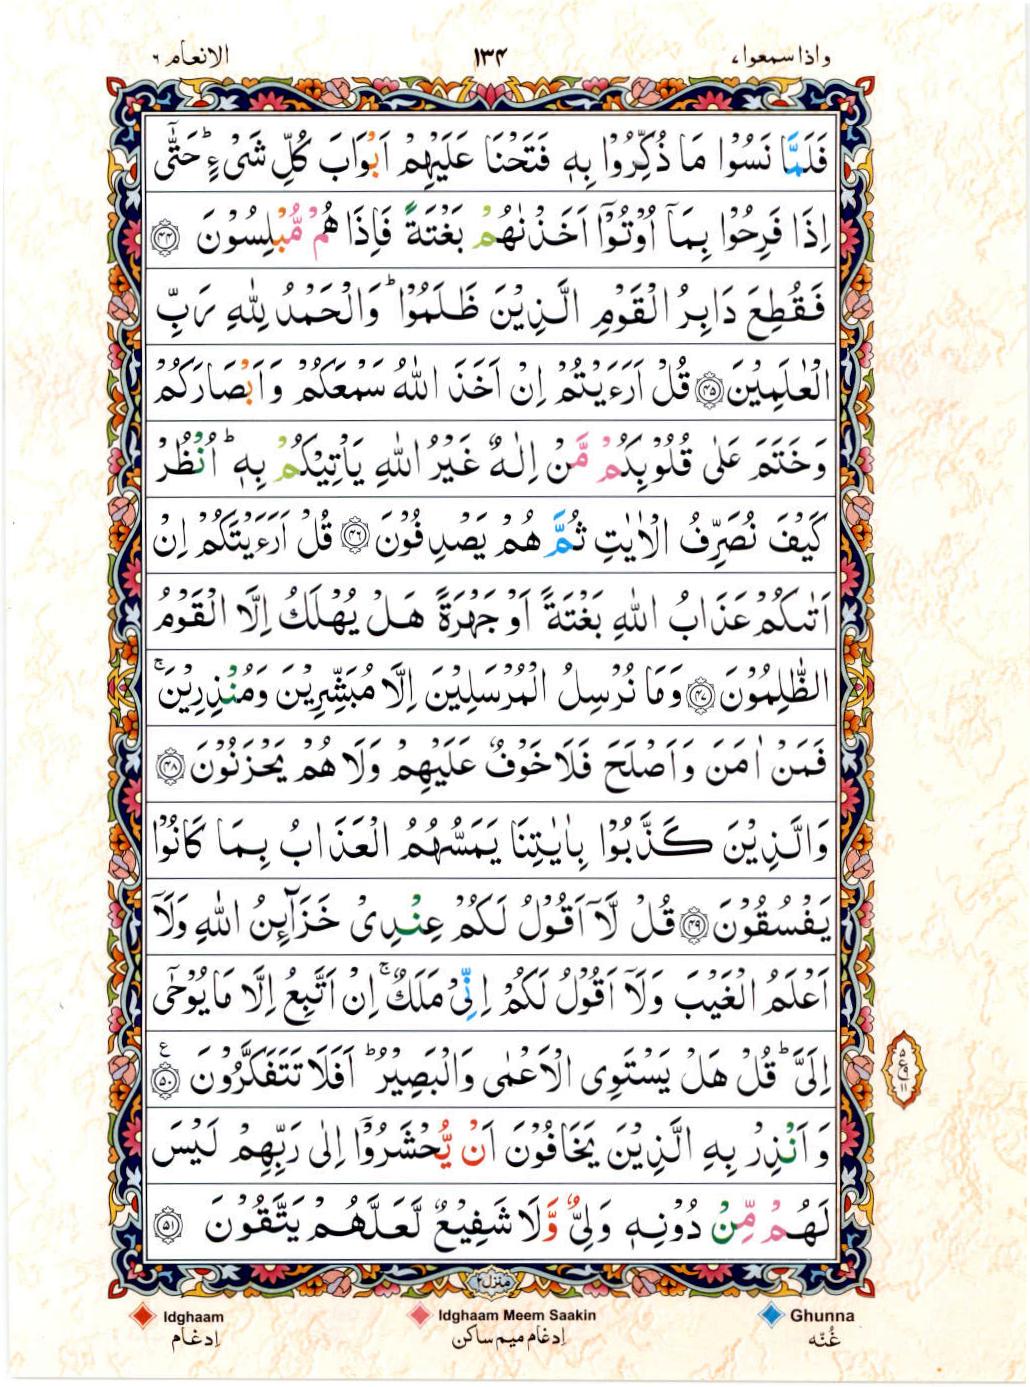 واذا سمعوا، ۱۳۴ الانعام ۶
فَلَمَّا نَسُوْا مَا ذُكِّرُوْا بِهٖ فَتَحْنَا عَلَيْهِمْ اَبْوَابَ كُلِّ شَىْءٍؕ حَتّٰۤى
اِذَا فَرِحُوْا بِمَاۤ اُوْتُوْۤا اَخَذْنٰهُمْ بَغْتَةً فَاِذَا هُمْ مُّبْلِسُوْنَ ۝۴۴
فَقُطِعَ دَابِرُ الْقَوْمِ الَّذِيْنَ ظَلَمُوْاؕ وَالْحَمْدُ لِلّٰهِ رَبِّ
الْعٰلَمِيْنَ ۝۴۵ قُلْ اَرَءَيْتُمْ اِنْ اَخَذَ اللّٰهُ سَمْعَكُمْ وَاَبْصَارَكُمْ
وَخَتَمَ عَلٰى قُلُوْبِكُمْ مَّنْ اِلٰهٌ غَيْرُ اللّٰهِ يَاْتِيْكُمْ بِهٖؕ اُنْظُرْ
كَيْفَ نُصَرِّفُ الْاٰيٰتِ ثُمَّ هُمْ يَصْدِفُوْنَ ۝۴۶ قُلْ اَرَءَيْتَكُمْ اِنْ
اَتٰىكُمْ عَذَابُ اللّٰهِ بَغْتَةً اَوْ جَهْرَةً هَلْ يُهْلَكُ اِلَّا الْقَوْمُ
الظّٰلِمُوْنَ ۝۴۷ وَمَا نُرْسِلُ الْمُرْسَلِيْنَ اِلَّا مُبَشِّرِيْنَ وَمُنْذِرِيْنَۚ
فَمَنْ اٰمَنَ وَاَصْلَحَ فَلَا خَوْفٌ عَلَيْهِمْ وَلَا هُمْ يَحْزَنُوْنَ ۝۴۸
وَالَّذِيْنَ كَذَّبُوْا بِاٰيٰتِنَا يَمَسُّهُمُ الْعَذَابُ بِمَا كَانُوْا
يَفْسُقُوْنَ ۝۴۹ قُلْ لَّاۤ اَقُوْلُ لَكُمْ عِنْدِىْ خَزَآئِنُ اللّٰهِ وَلَاۤ
اَعْلَمُ الْغَيْبَ وَلَاۤ اَقُوْلُ لَكُمْ اِنِّىْ مَلَكٌۚ اِنْ اَتَّبِعُ اِلَّا مَا يُوْحٰۤى
اِلَىَّؕ قُلْ هَلْ يَسْتَوِى الْاَعْمٰى وَالْبَصِيْرُؕ اَفَلَا تَتَفَكَّرُوْنَ ۝۵۰ ع
وَاَنْذِرْ بِهِ الَّذِيْنَ يَخَافُوْنَ اَنْ يُّحْشَرُوْۤا اِلٰى رَبِّهِمْ لَيْسَ
لَهُمْ مِّنْ دُوْنِهٖ وَلِىٌّ وَّلَا شَفِيْعٌ لَّعَلَّهُمْ يَتَّقُوْنَ ۝۵۱
منزل۲
Idghaam Idghaam Meem Saakin Ghunna
اِدغام اِدغام میم ساکن غُنّه